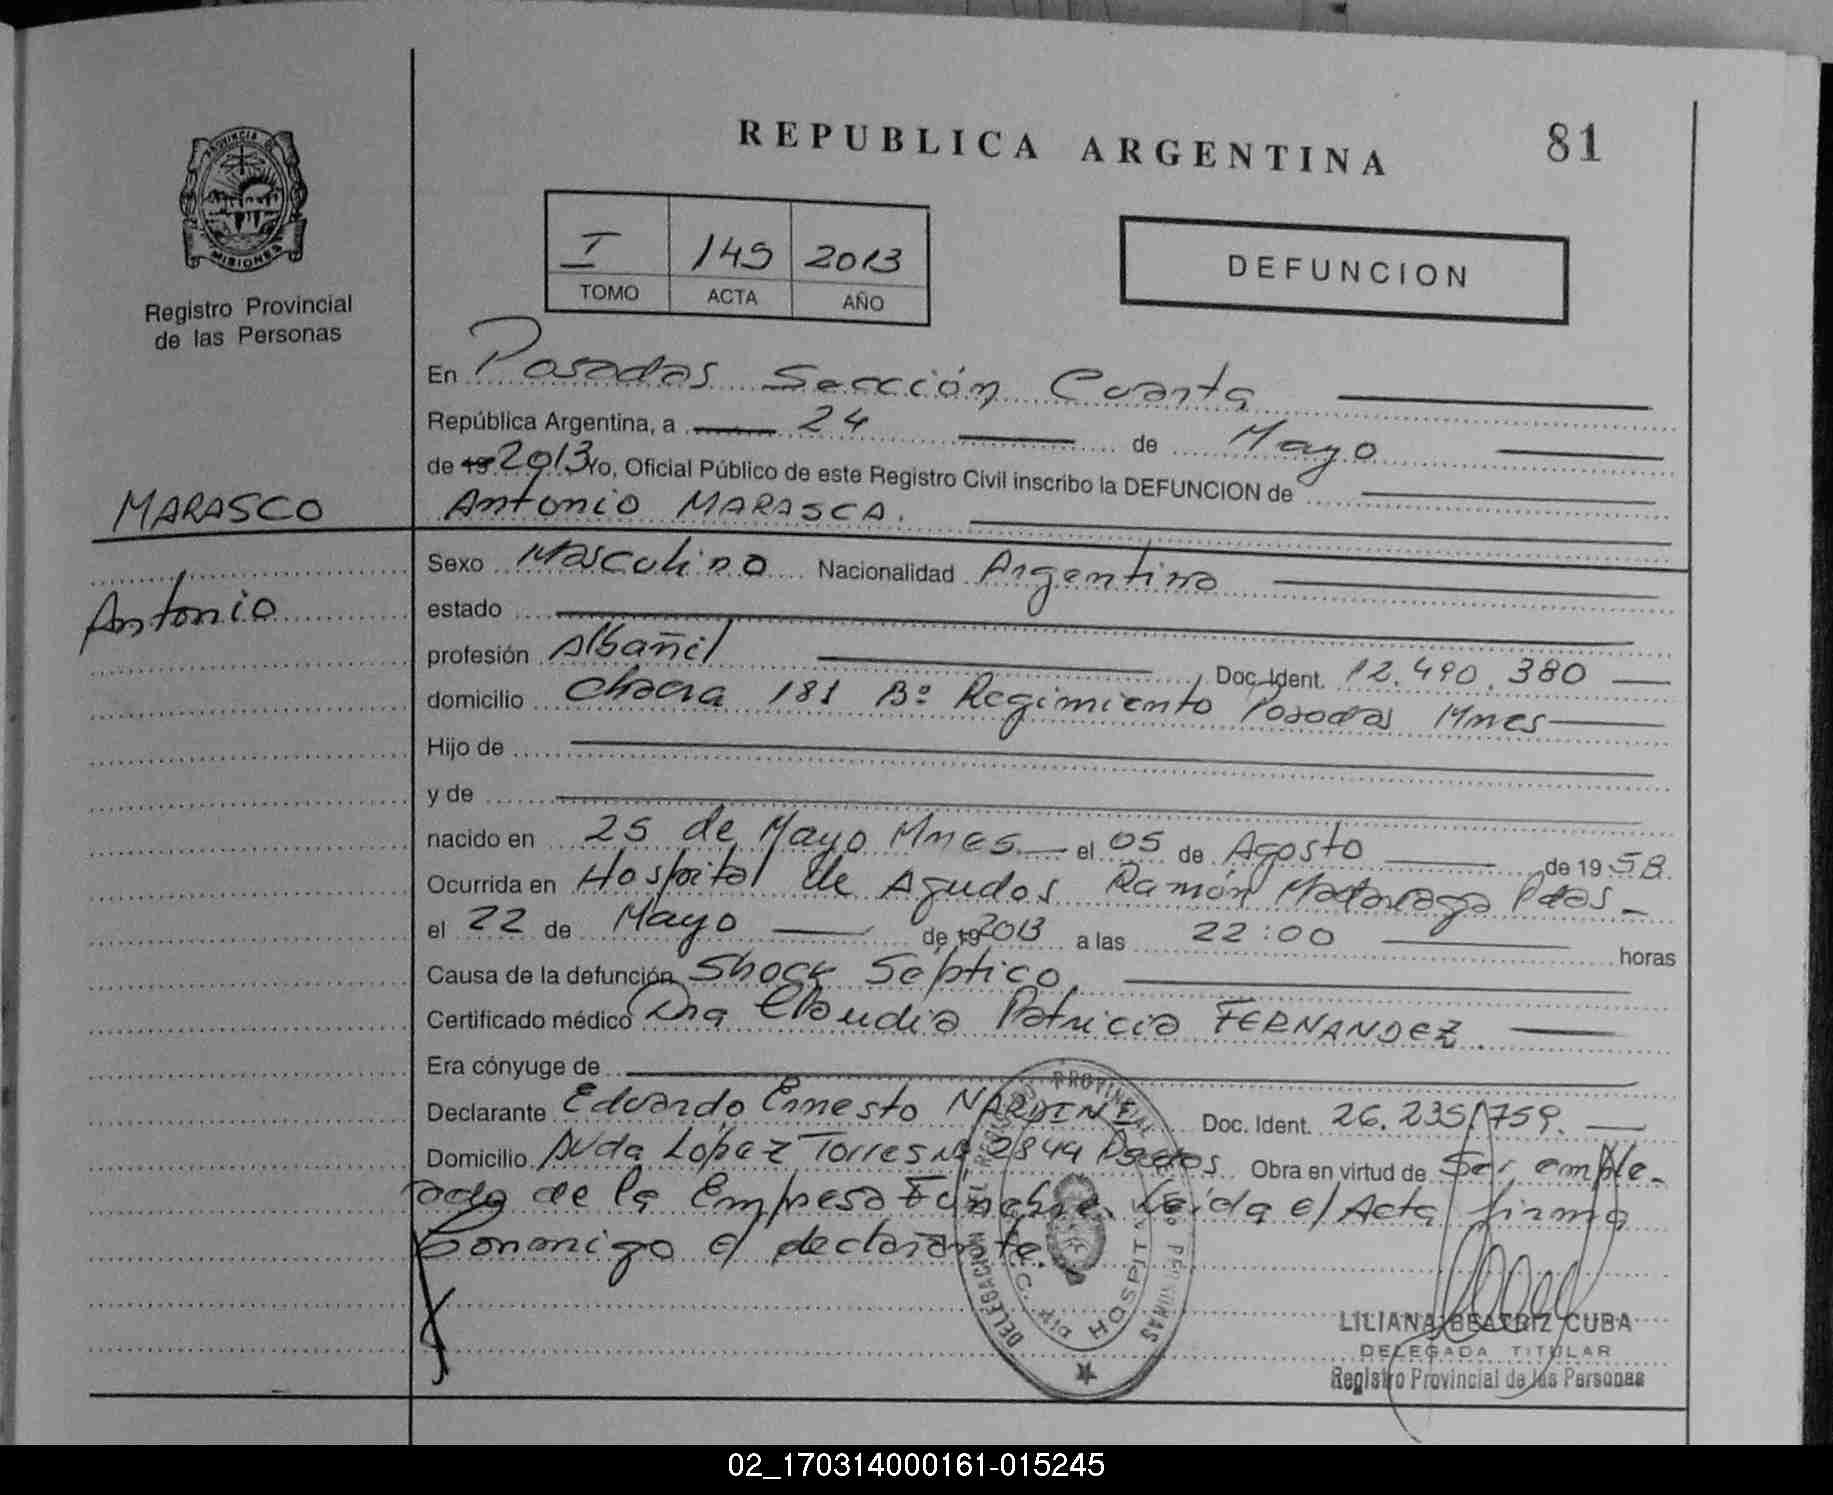 REPUBLICA ARGENTINA
81
PROVINCIA DE
MISIONES
Registro Provincial
de las Personas
I 149 2013
TOMO ACTA AÑO
DEFUNCION
En Posadas Sección Cuarta
República Argentina, a 24 de Mayo
de 19 2013 Yo, Oficial Público de este Registro Civil inscribo la DEFUNCION de
MARASCO
Antonio MARASCA.
Antonio
Sexo Masculino Nacionalidad Argentina
estado
profesión Albañil Doc. Ident. 12.490.380
domicilio Chacra 181 Bº Regimiento Posadas Mnes
Hijo de
y de
nacido en 25 de Mayo Mnes el 05 de Agosto de 1958
Ocurrida en Hospital de Agudos Ramón Madariaga Pdas
el 22 de Mayo de 19 2013 a las 22:00 horas
Causa de la defunción Shock Séptico
Certificado médico Dra Claudia Patricia FERNANDEZ.
Era cónyuge de
Declarante Eduardo Ernesto NARDINI Doc. Ident. 26.235.759.
Domicilio Avda López Torres Nº 2844 Posadas Obra en virtud de Ser emple-
ado de la Empresa Fúnebre. Leída el Acta firma
Conmigo el declarante.
DELEGACION DEL REGISTRO PROVINCIAL DE PERSONAS
HOSPITAL
LILIANA BEATRIZ CUBA
DELEGADA TITULAR
Registro Provincial de las Personas
02_170314000161-015245